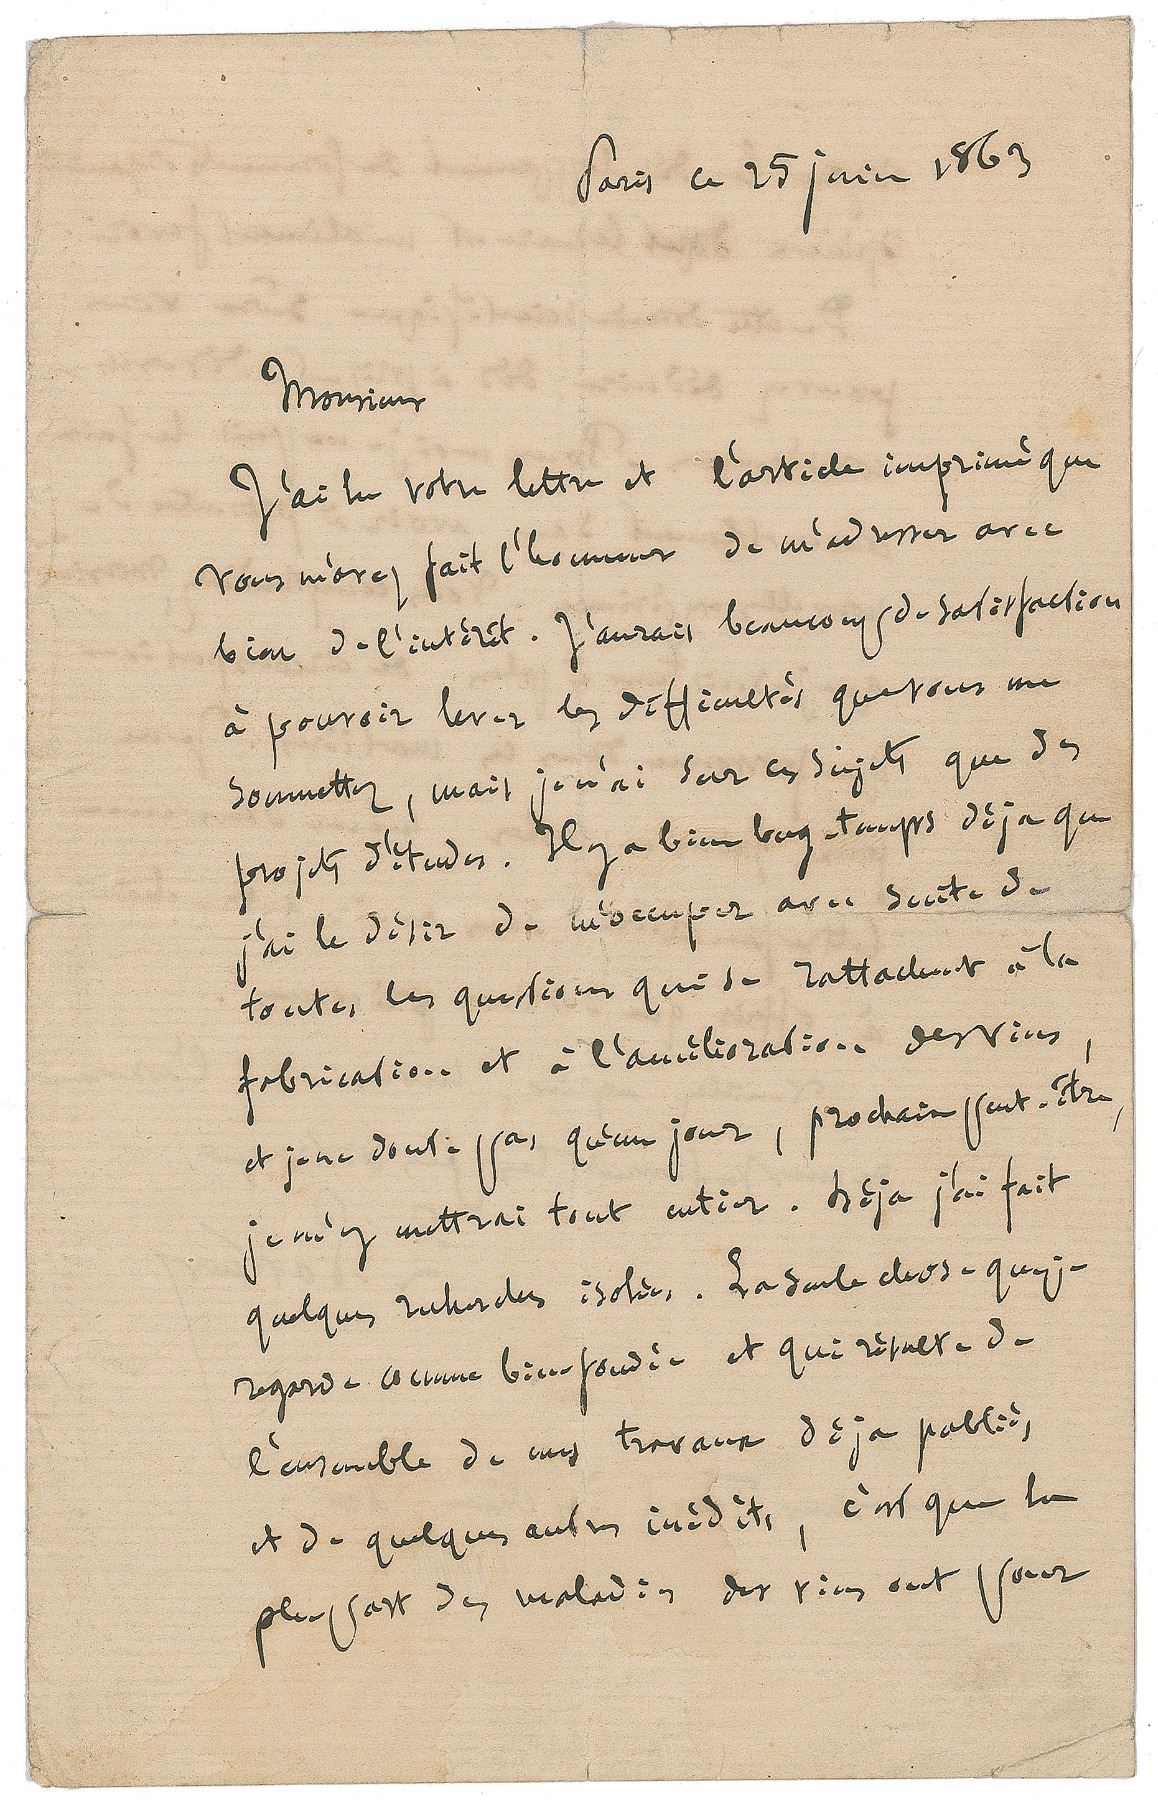 Paris ce 25 juin 1863
Monsieur
J'ai lu votre lettre et l'article imprimé que
vous m'avez fait l'honneur de m'adresser avec
bien de l'intérêt. J'aurais beaucoup de satisfaction
à pouvoir lever les difficultés que vous me
soumettez, mais je n'ai sur ces sujets que des
projets d'études. Il y a bien long-temps déja que
j'ai le désir de m'occuper avec suite de
toutes les questions qui se rattachent à la
fabrication et à l'amélioration des vins,
et je ne doute pas qu'un jour, prochain peut-être,
je m'y mettrai tout entier. Déja j'ai fait
quelques recherches isolées. La seule chose que je
regarde comme bien fondée et qui résulte de
l'ensemble de mes travaux déja publiés
et de quelques autres inédits, c'est que la
plus part des maladies des vins ont pour